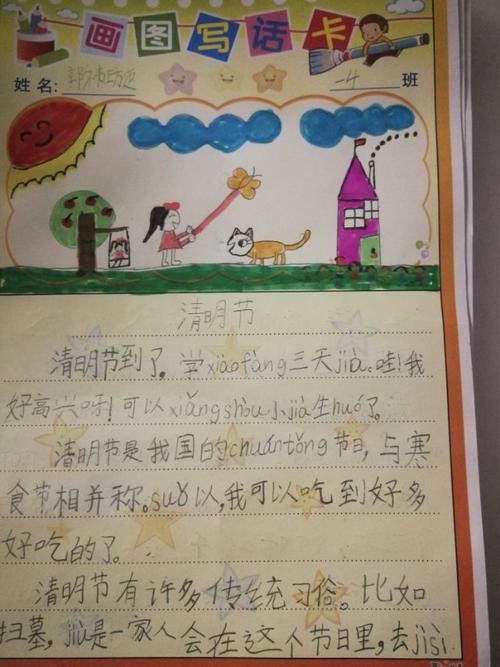 画图写话卡
姓名: 郭 一4 班
清明节
清明节到了。学xiào fàng三天jià。哇!我
好高兴呀!可以xiǎng shòu小jià生huó了。
清明节是我国的chuántǒng节日,与寒
食节相并称。suǒ以,我可以吃到好多
好吃的了。
清明节有许多传统习俗。比如
扫墓,jiù是一家人会在这个节日里,去jì sì